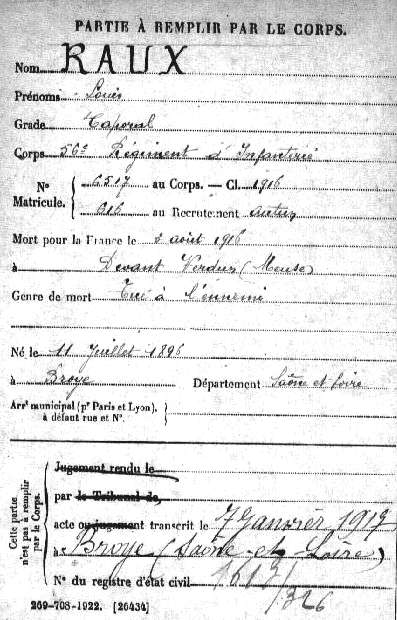 PARTIE À REMPLIR PAR LE CORPS.
Nom RAUX
Prénoms Louis
Grade Caporal
Corps 56e Régiment d'Infanterie
N° Matricule. { 6517 au Corps. — Cl. 1916
616 au Recrutement Autun
Mort pour la France le 8 août 1916
à Devant Verdun (Meuse)
Genre de mort Tué à l'ennemi
Né le 11 Juillet 1896
à Broye Département Saône et Loire
Arrt municipal (pr Paris et Lyon), à défaut rue et N°.
Cette partie n'est pas à remplir par le Corps.
Jugement rendu le
par le Tribunal de
acte ou jugement transcrit le 7 Janvier 1917
à Broye (Saône et Loire)
N° du registre d'état civil
269-708-1922. [26434]